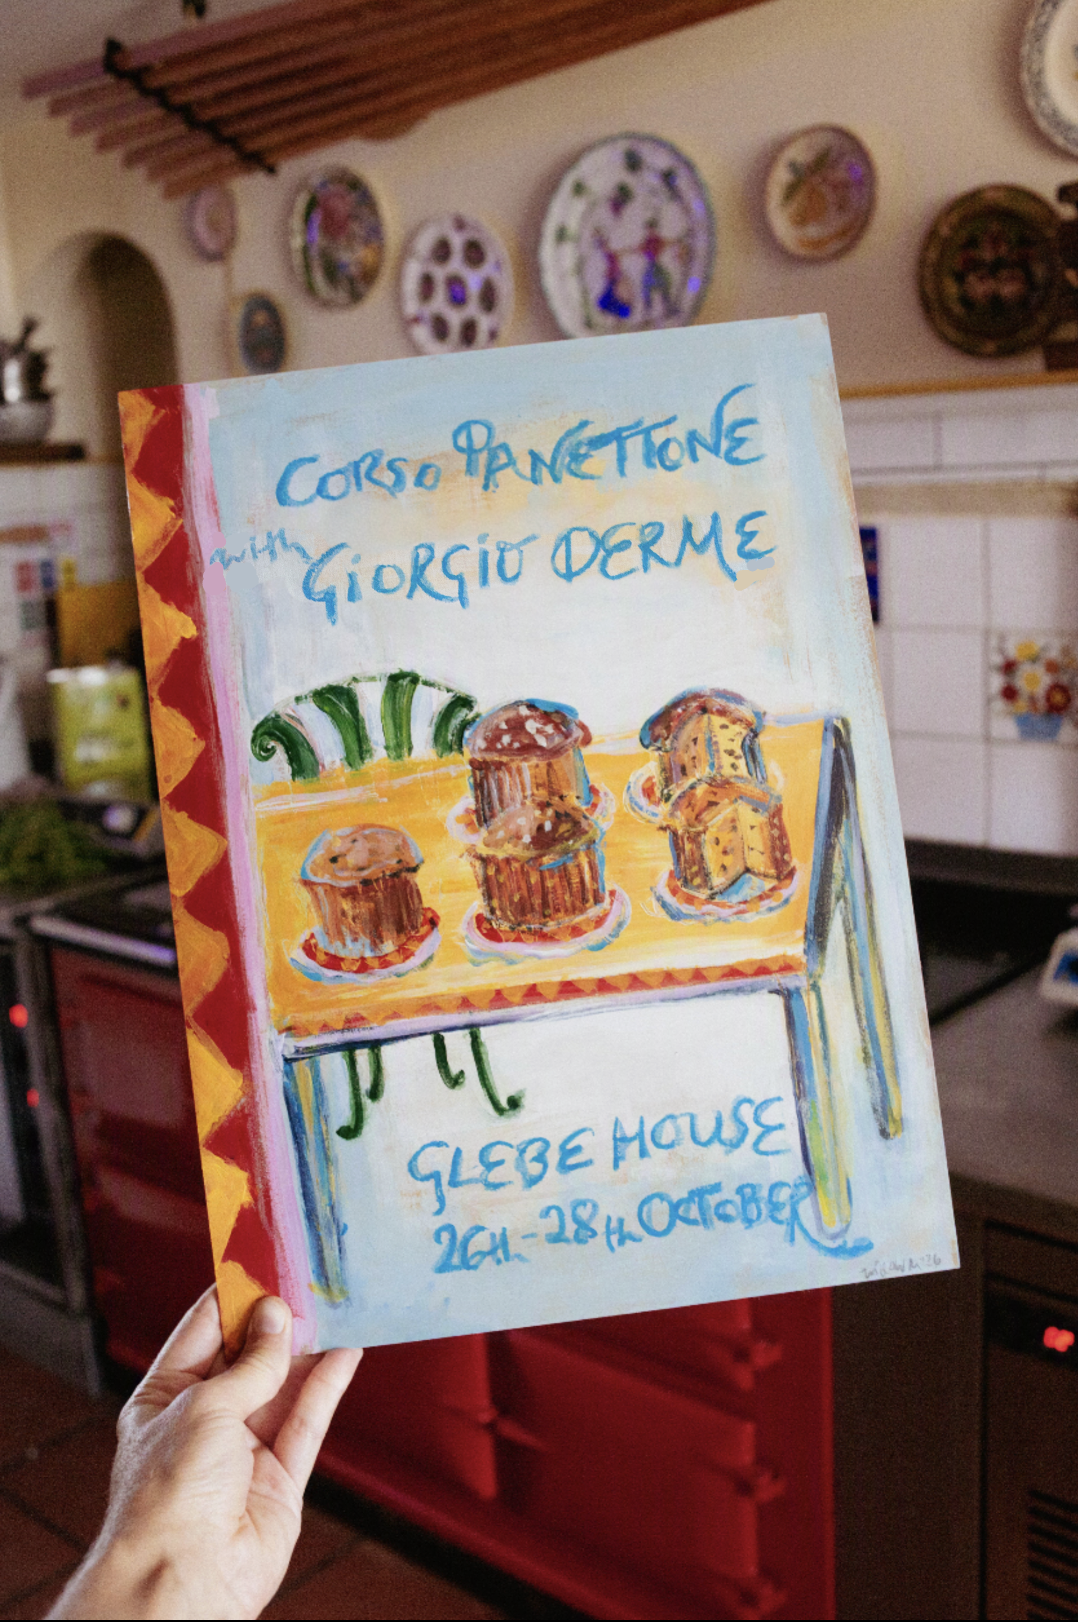 CORSO PANETTONE
with GiORGiO DERME
GLEBE HOUSE
26th-28th OCTOBER